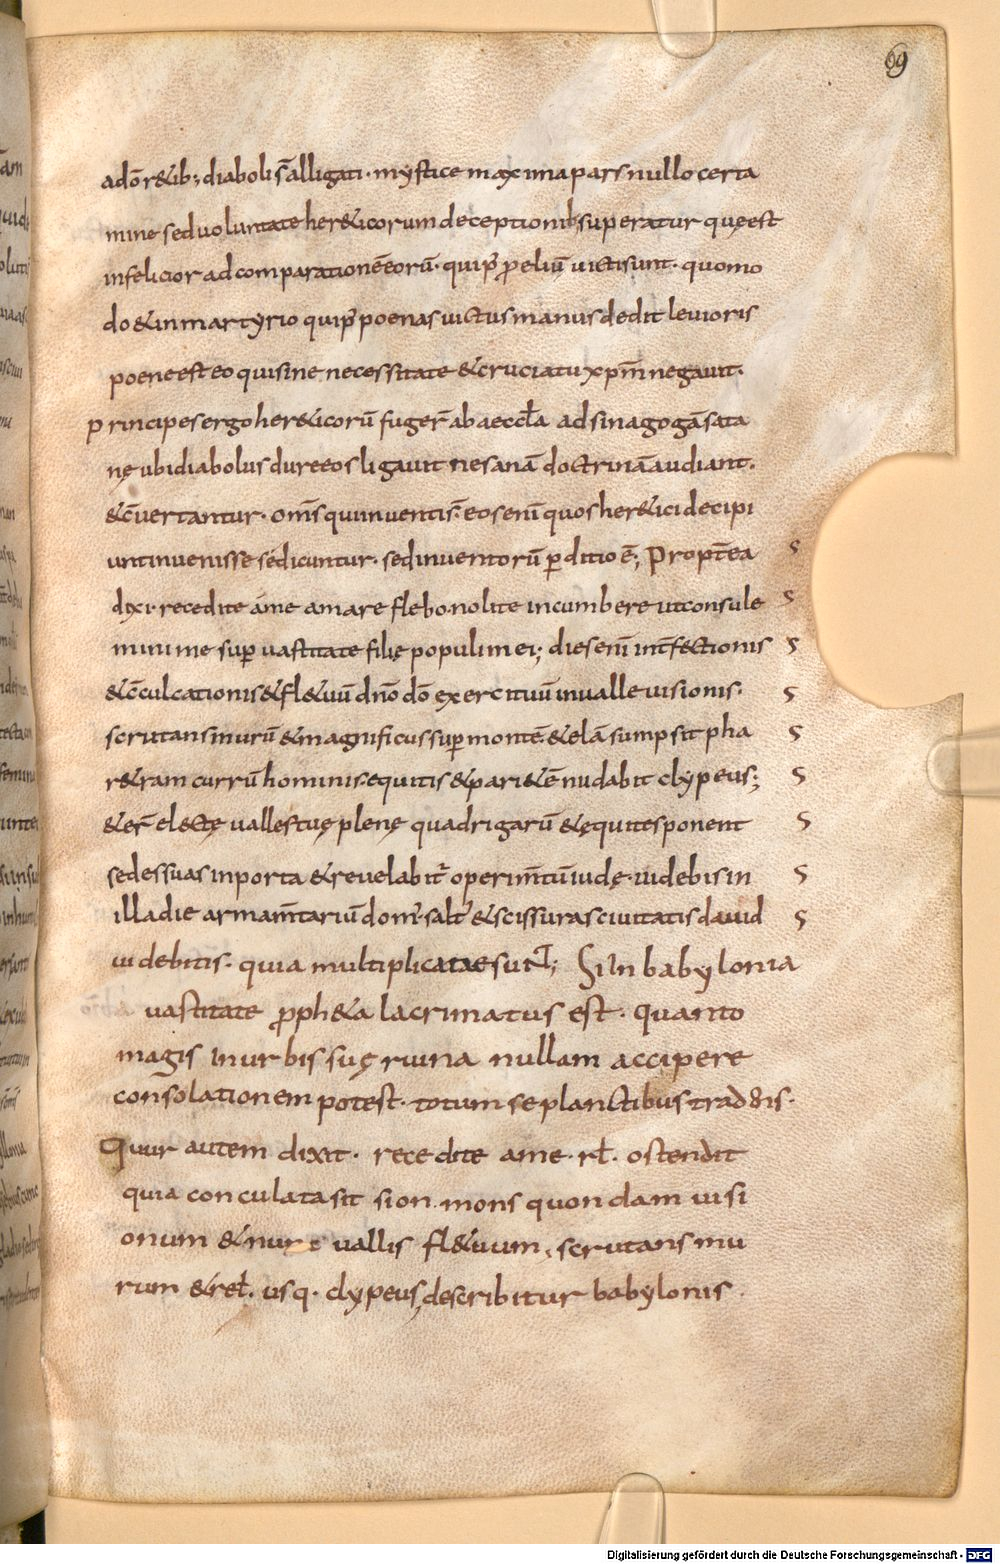 69
adōr&ib; diaboli s̄ alligati · mystice maxima pars nullo certa
mine sed uoluntate her&icorum deceptionib; superatur quę est
infelicior ad comparationē eorū · qui p̄ p̄oeliū uicti sunt · quomo
do & in martyrio qui p̄ poenas uictus manus dedit leuioris
poene est eo qui sine necessitate & cruciatu xp̄m negauit.
Principes ergo her&icorū fuger̄ ab aeccl̄a ad sinagogā sata
nę ubi diabolus dure eos ligauit ne sanā doctrinā audiant.
& c̄uertantur · om̄s qui inuenti s̄ · eos enī quos her&ici decipi
unt inuenisse se dicuntur · sed inuentorū p̄ditio ē; Propt̄ea
dixi · recedite áme amare flebo · nolite incumbere ut consule
mini me sup̄ uastitate filię populi mei; dies enī int̄fectionis
& c̄culcationis & fl&uū dn̄o dō exercituū in ualle uisionis.
scrutans murū & magnificus sup̄ montē · & elā sumpsit pha
r&ram currū hominis · equitis & pari&ē nudabit clypeus;
& er̄ elęctę ualles tuę plenę quadrigarū & ęquites ponent
sedes suas in porta & reuelabit̄ operim̄tū iudę · uidebis in
illa die armam̄tariū dom' salt' & scissuras ciuitatis dauid
uidebitis · quia multiplicatae sunt; Si in babylonia
uastitate p̄oph&a lacrimatus est · quanto
magis in urbis suę ruina nullam accipere
consolationem potest · totum se planctibus tradens.
Quur autem dixit · recedite ame · rł. ostendit
quia conculata sit sion · mons quondam uisi
onum & nunc uallis fl&uum, scrutans mu
rum & reł. usq. clypeus, describitur babylonis.
Digitalisierung gefördert durch die Deutsche Forschungsgemeinschaft - DFG